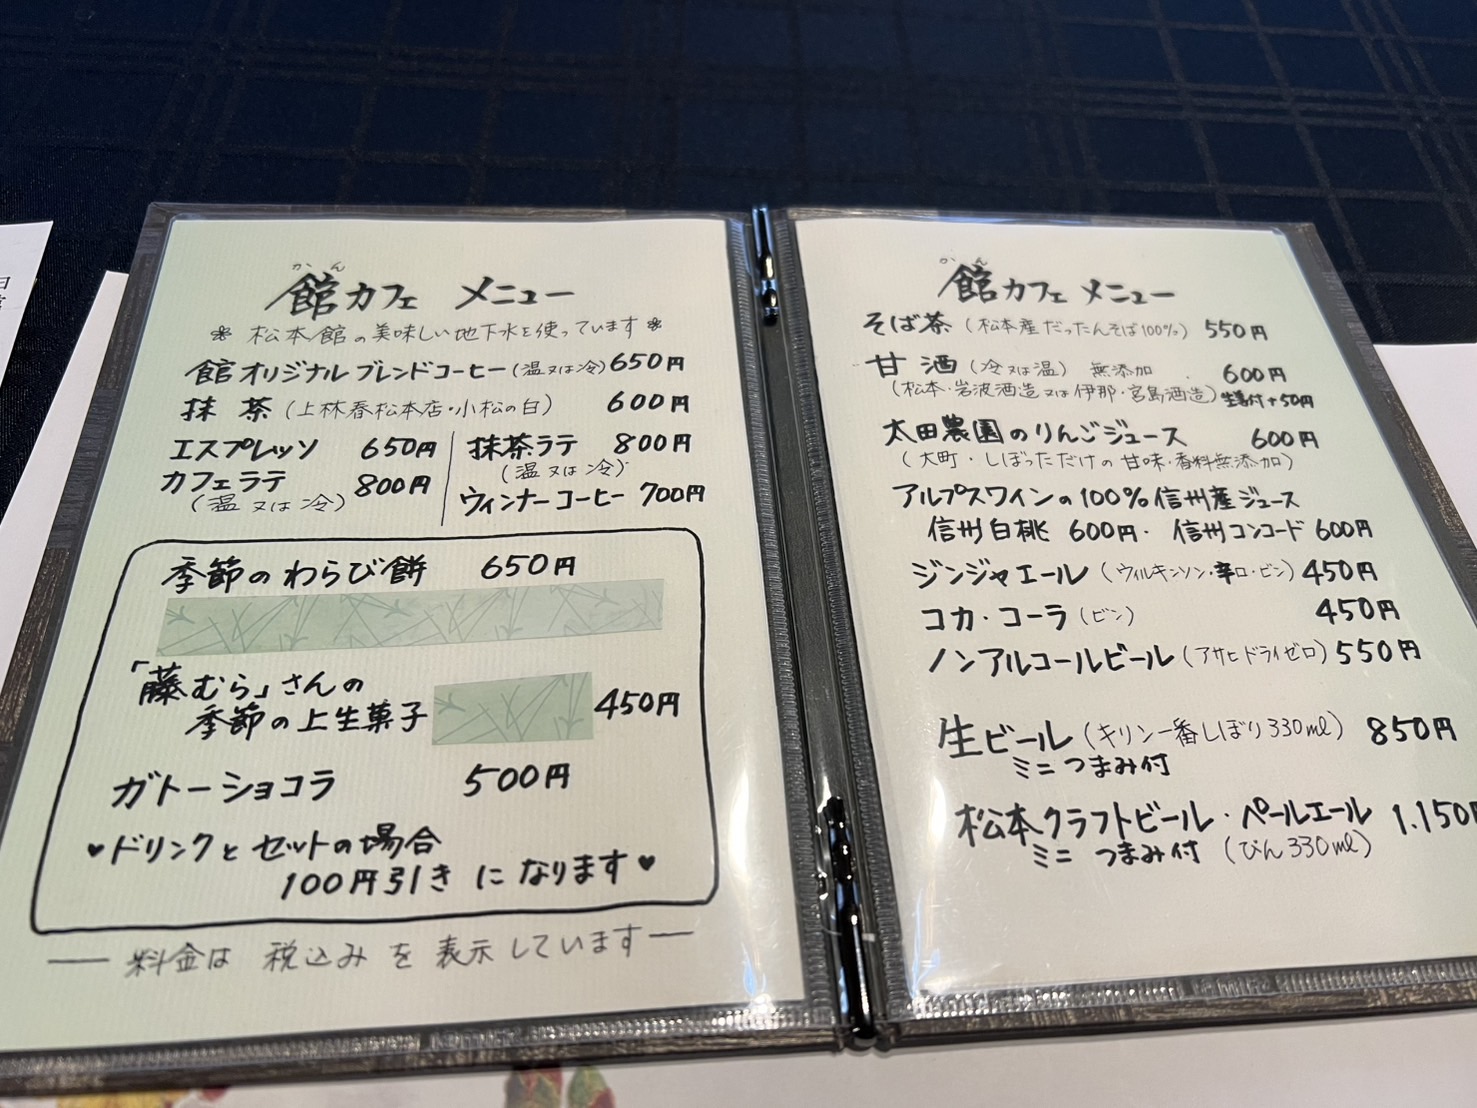 かん
館カフェ メニュー
❀ 松本館の美味しい地下水を使っています ❀
館オリジナルブレンドコーヒー(温又は冷) 650円
抹茶(上林春松本店・小松の白) 600円
エスプレッソ 650円
カフェラテ 800円
(温又は冷)
抹茶ラテ 800円
(温又は冷)
ウィンナーコーヒー 700円
季節のわらび餅 650円
「藤むら」さんの
季節の上生菓子 450円
ガトーショコラ 500円
♥ドリンクとセットの場合
100円引きになります♥
― 料金は 税込み を 表示しています ―
かん
館カフェ メニュー
そば茶(松本産だったんそば100%) 550円
甘酒(冷又は温) 無添加 600円
(松本・岩波酒造又は伊那・宮島酒造) 生姜付+50円
太田農園のりんごジュース 600円
(大町・しぼっただけの甘味・香料無添加)
アルプスワインの100%信州産ジュース
信州白桃 600円・ 信州コンコード 600円
ジンジャエール(ウィルキンソン・辛口・ビン) 450円
コカ・コーラ(ビン) 450円
ノンアルコールビール(アサヒドライゼロ) 550円
生ビール(キリン一番しぼり330ml) 850円
ミニつまみ付
松本クラフトビール・ペールエール 1.150円
ミニ つまみ付 (びん330ml)